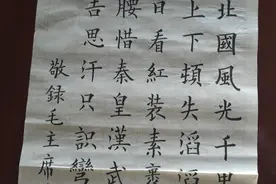 北國風光千里
上下頓失滔滔
日看紅装素裹
腰惜秦皇漢武
吉思汗只識彎
敬録毛主席